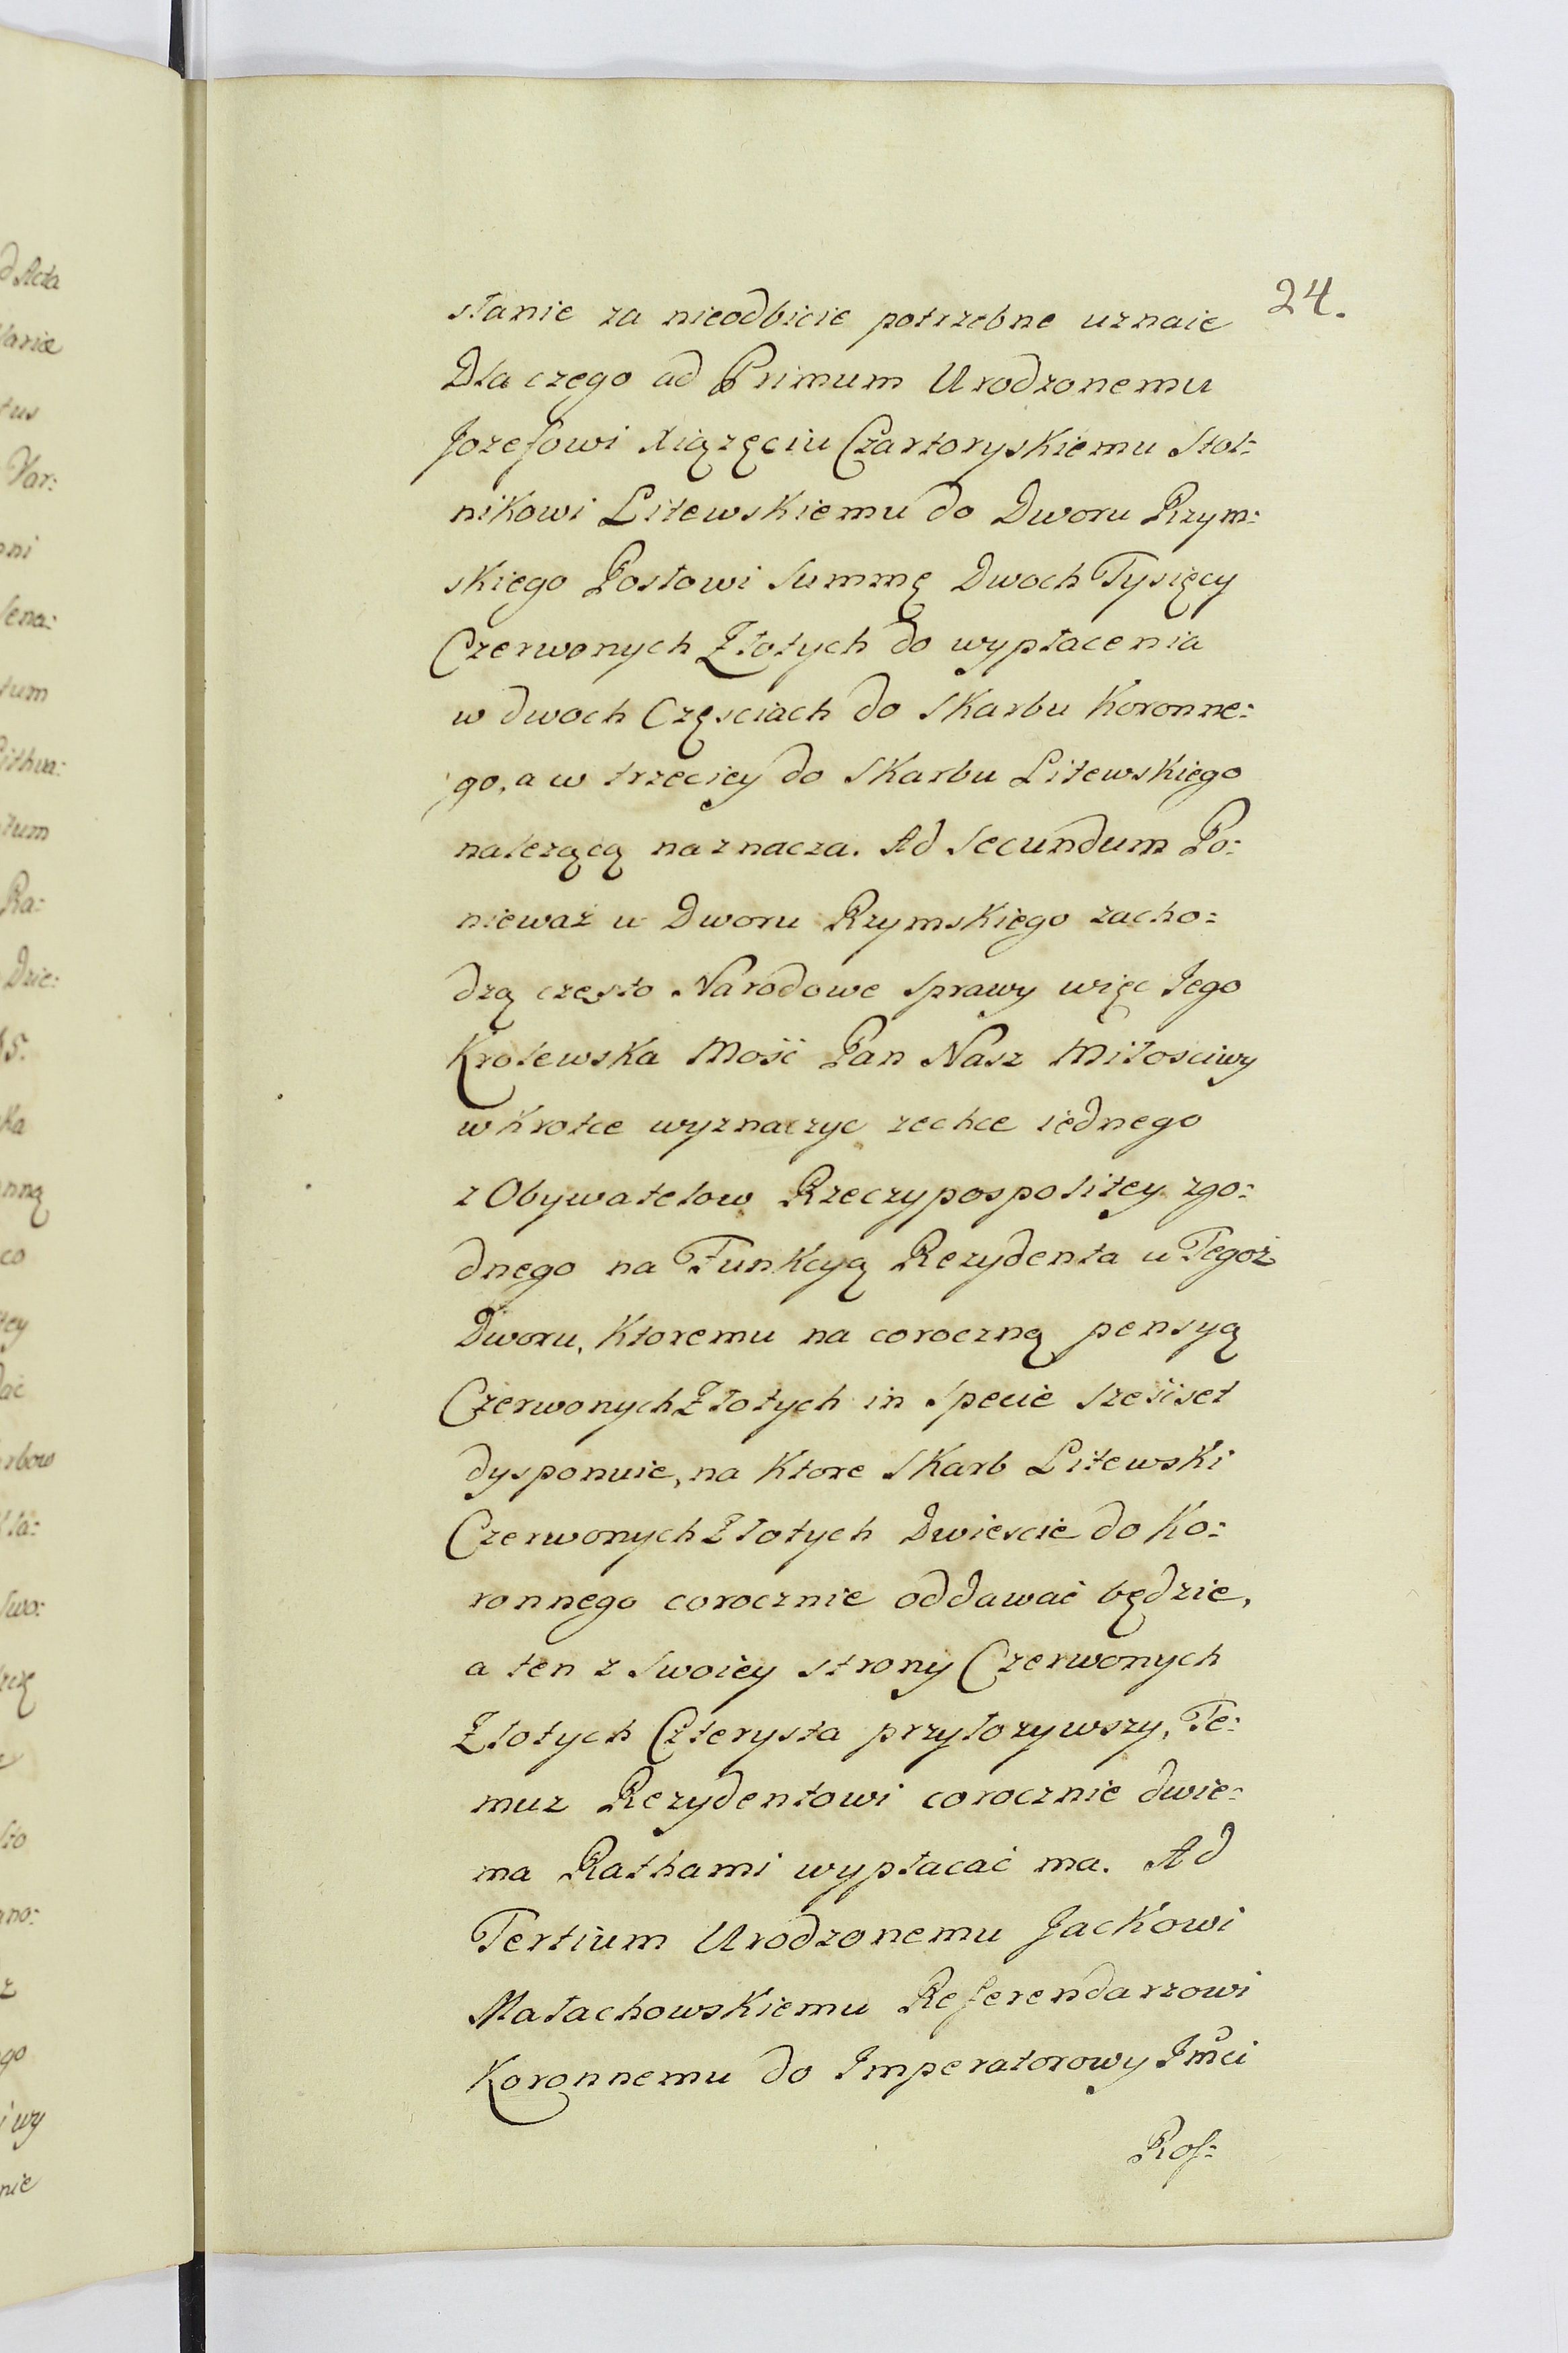 24.
słanie za nieodbicie potrzebne uznaie
Dla czego ad Primum Urodzonemu
Jozefowi Xiązęciu Czartoryskiemu Stol:
nikowi Litewskiemu do Dworu Rzym:
skiego Posłowi Summę Dwoch Tysięcy
Czerwonych Złotych do wypłacenia
w dwoch Częsciach do Skarbu Koronne:
go, a w trzeciey do Skarbu Litewskiego
nalezącą naznacza. Ad Secundum Po:
niewaz u Dworu Rzymskiego zacho:
dzą często Narodowe Sprawy więc Jego
Krolewska Mość Pan Nasz Miłosciwy
wkrotce wyznaczyc zechce iednego
z Obywatelow Rzeczypospolitey zgo:
dnego na Funkcyą Rezydenta u Tegoż
Dworu, Ktoremu na coroczną pensyą
Czerwonych Złotych in Specie Sześćset
dysponuie, na Ktore Skarb Litewski
Czerwonych Złotych Dwiescie do Ko:
ronnego corocznie oddawać będzie,
a ten z Swoiey strony Czerwonych
Złotych Czterysta przyłozywszy, Te:
muz Rezydentowi corocznie dwie:
ma Rathami wypłacać ma. Ad
Tertium Urodzonemu Jackowi
Małachowskiemu Referendarzowi
Koronnemu do Imperatorowy Jmci
Ros:
d Acta
Var:
Sena:
tum
Ra:
Dzie:
Swo: